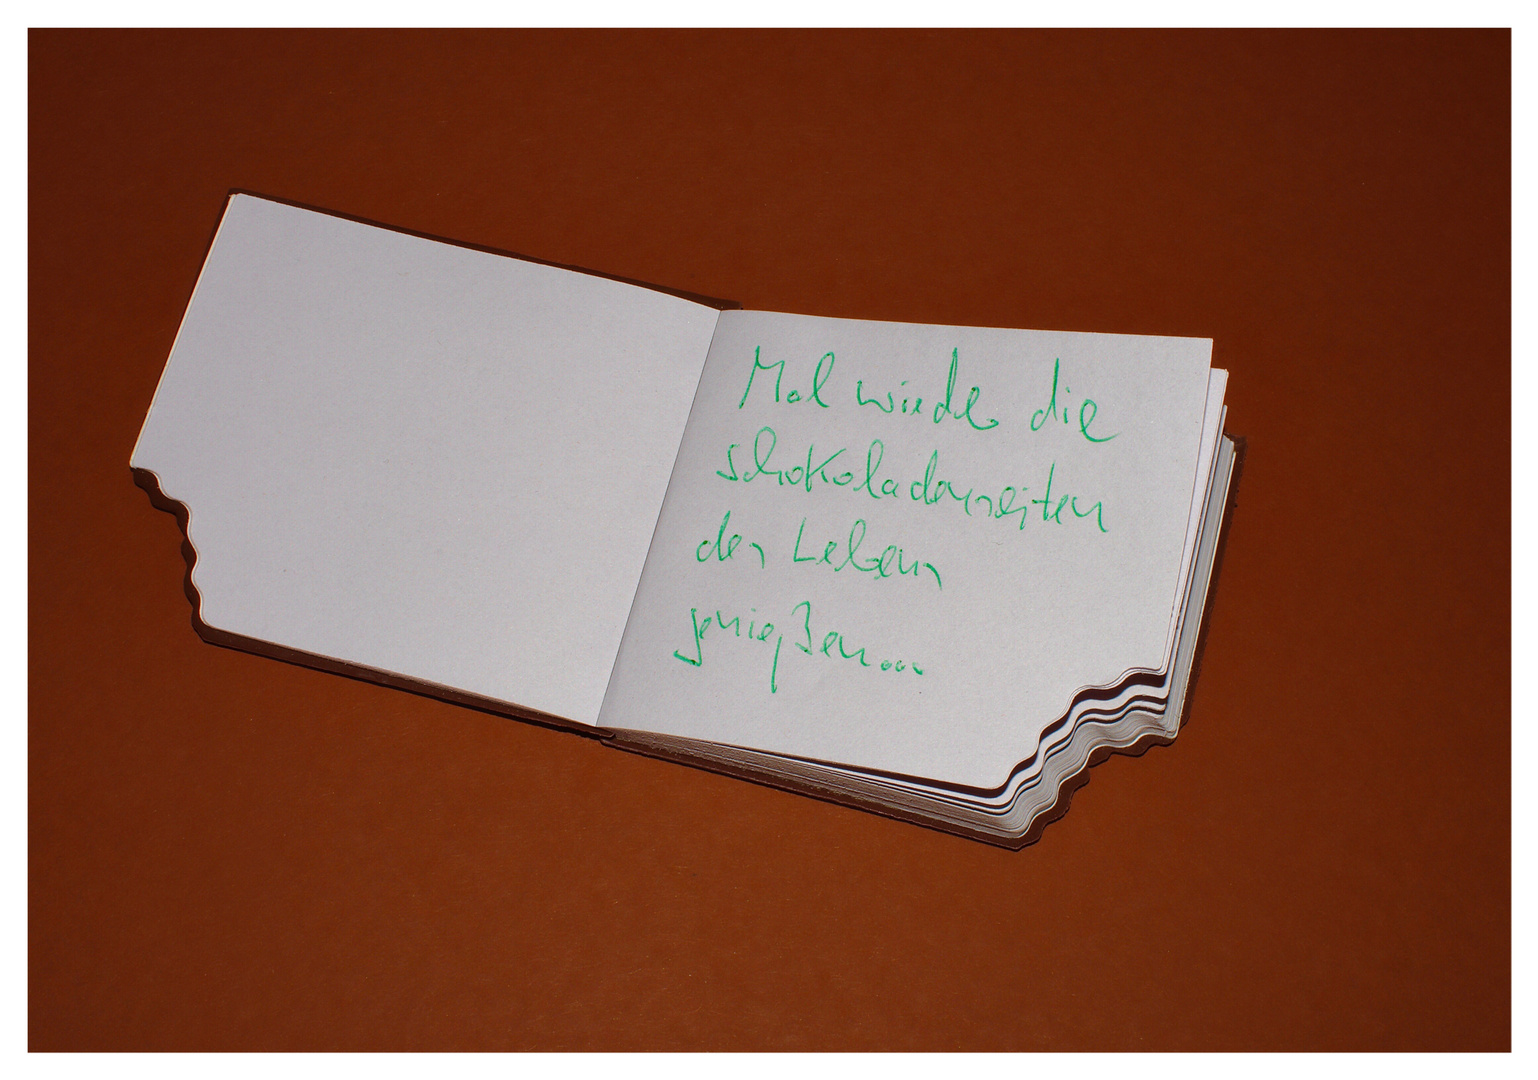 Mal wieder die
schokoladenseiten
des Lebens
genießen...